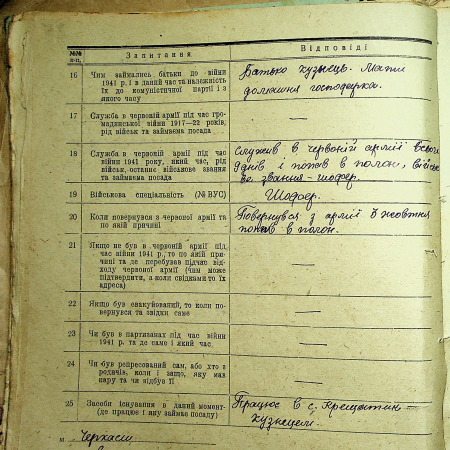 №№ п-п. Запитання Відповіді
16 Чим займались батьки до війни
1941 р. і в даний час та належність
їх до комуністичної партії і з
якого часу
Батько кузнець. Мати
домашня господарка.
17 Служба в червоній армії під час гро-
мадянської війни 1917—22 років,
рід військ та займаема посада
—
18 Служба в червоній армії під час
війни 1941 року, який час, рід
військ, останнє військове звання
та займаема посада
Служив в червоній армії
днів і попав в полон,
звання - шофер.
19 Військова спеціальність (№ ВУС)
Шофер.
20 Коли повернувся з червоної армії та
по якій причині
Повернувся з армії 8 жовтня
попав в полон.
21 Якщо не був в червоній армії під
час війни 1941 р., то по якій при-
чині та де перебував підчас від-
ходу червоної армії (чим може
підтвердити, а коли свідками то їх
адреса)
—
22 Якщо був евакуйований, то коли по-
вернувся та звідки саме
—
23 Чи був в партизанах під час війни
1941 р. та де саме і який час
—
24 Чи був репресований сам, або хто з
родичів, коли і защо, яку мав
кару та чи відбув її
—
25 Засоби існування в даний момент-
(де працює і яку займає посаду)
Працює в с.
кузнецем.
м. Черкаси